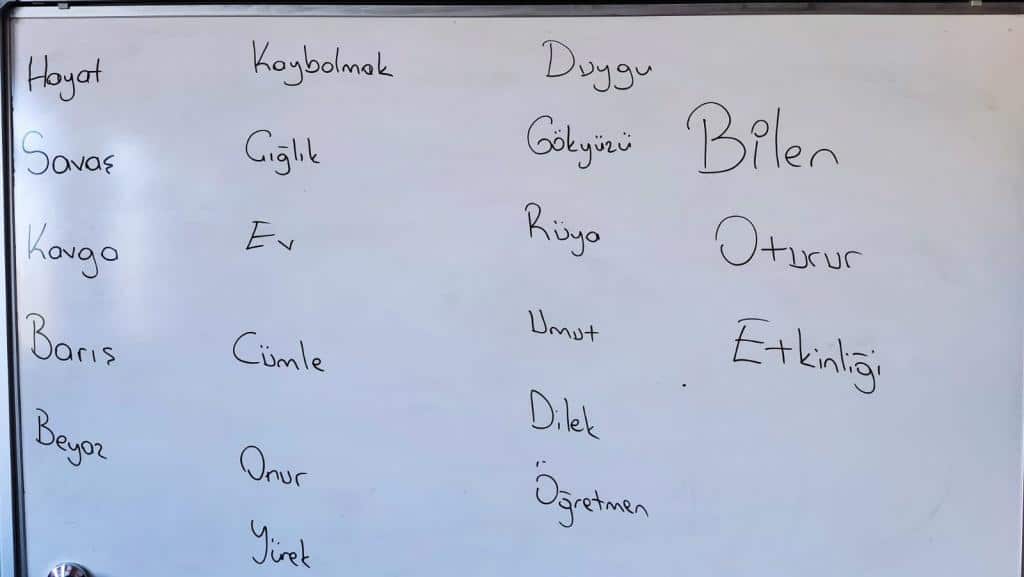 Hayat
Savaş
Kavga
Barış
Beyaz
Kaybolmak
Cığlık
Ev
Cümle
Onur
Yürek
Duygu
Gökyüzü
Rüya
Umut
Dilek
Öğretmen
Bilen
Oturur
Etkinliği